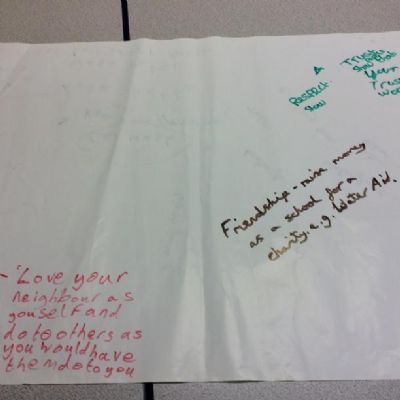 Trust
show that
your
Trust
wor
Respect
show
Friendship - raise money
as a school for a
charity. e.g. Water Aid.
- 'Love your
neighbour as
youself and
do to others as
you would have
them do to you